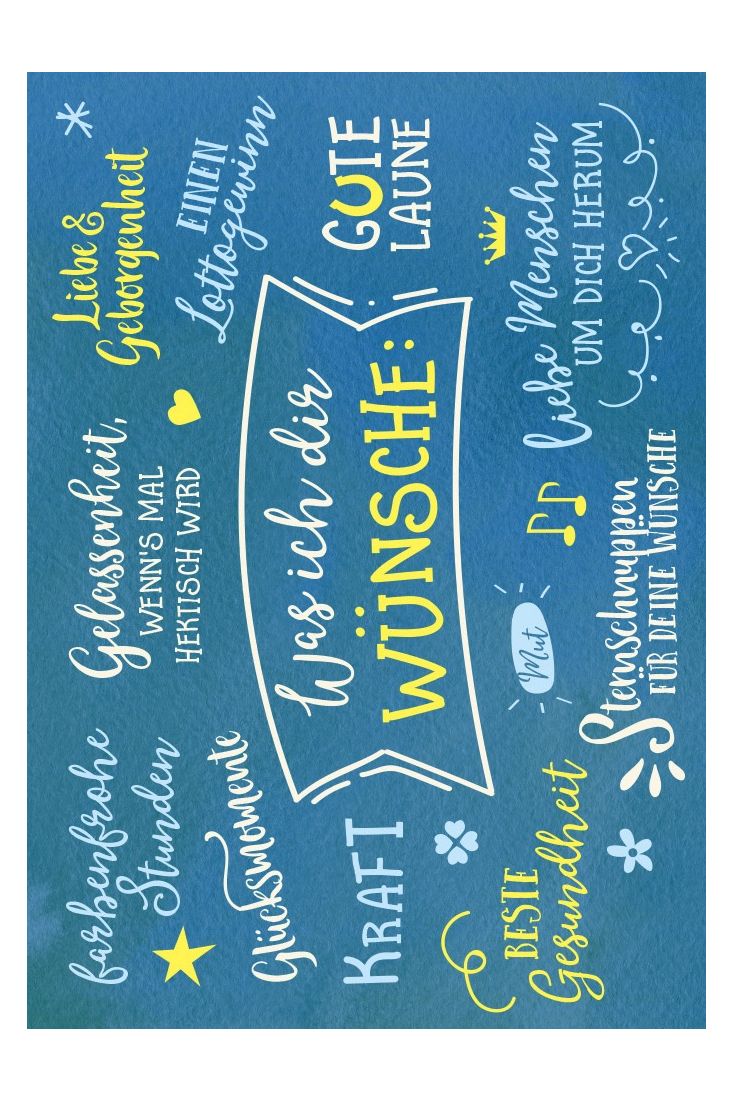 farbenfrohe
Stunden
Gelassenheit,
WENN'S MAL
HEKTISCH WIRD
Liebe &
Geborgenheit
EINEN
Lottogewinn
Glücksmomente
Was ich dir
WÜNSCHE:
KRAFT
GUTE
LAUNE
BESTE
Gesundheit
Mut
Liebe Menschen
UM DICH HERUM
Sternschnuppen
FÜR DEINE WÜNSCHE